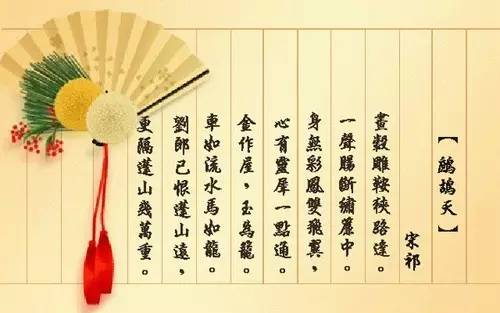 【鷓鴣天】
宋祁
畫轂雕鞍狹路逢。
一聲腸斷繡簾中。
身無彩鳳雙飛翼，
心有靈犀一點通。
金作屋，玉為籠。
車如流水馬如龍。
劉郎已恨蓬山遠，
更隔蓬山幾萬重。